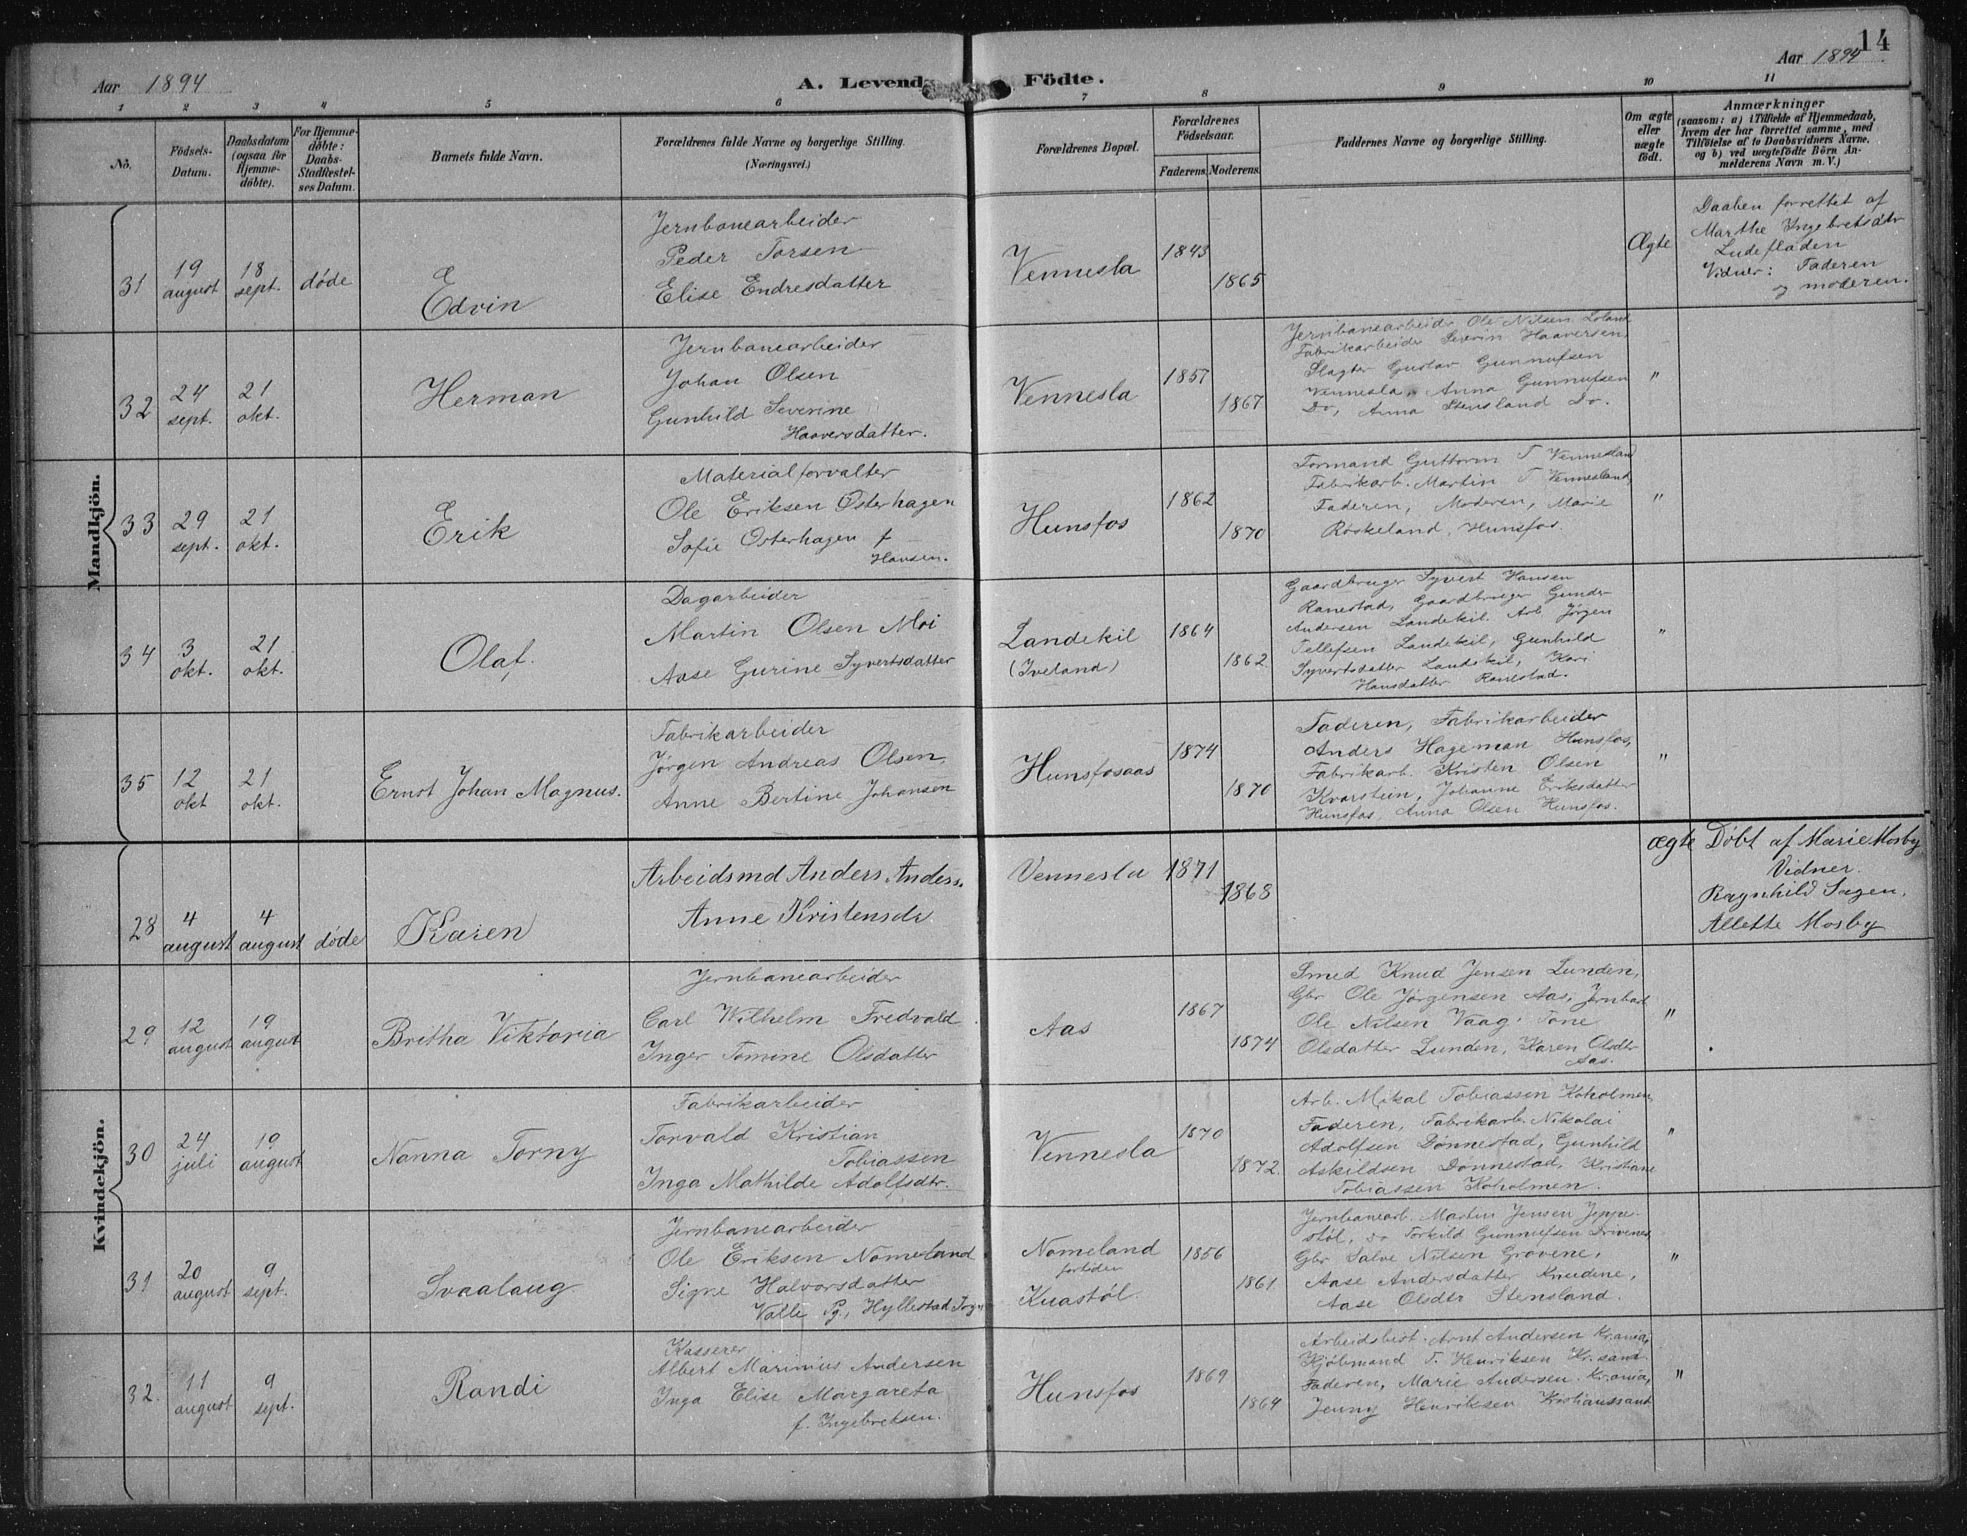 14
Aar 1894
A. Levende Födte.
Aar 1894
1 2 3 4 5 6 7 8 9 10 11
No.
Födsels-Datum.
Daabsdatum (ogsaa for Hjemme-döbte).
For Hjemme-döbte: Daabs-Stadfæstel-ses Datum.
Barnets fulde Navn.
Forældrenes fulde Navne og borgerlige Stilling.
(Næringsvei.)
Forældrenes Bopæl.
Forældrenes Födselsaar.
Faderens. Moderens.
Faddernes Navne og borgerlige Stilling.
Om ægte eller uægte födt.
Anmærkninger
(saasom: a) i Tilfælde af Hjemmedaab,
hvem der har forrettet samme, med
Tilföielse af to Daabsvidners Navne,
og b) ved uægtefödte Börn An-
melderens Navn m. V.)
Mandkjön.
31
19 august
18 sept.
døde
Edvin
Jernbanearbeider
Peder Torsen
Elise Endresdatter
Vennesla
1843
1865
Ægte
Daaben forrettet af
Marthe Ingebretsdtr
Ludefladen
Vidner: Faderen
og moderen.
32
24 sept.
21 okt.
Herman
Jernbanearbeider
Johan Olsen
Gunhild Severine
Haaversdatter.
Vennesla
1857
1867
Jernbanearbeider Ole Nilsen Loland
Fabrikarbeider Severin Haaversen,
Slagter Gustav Gunnufsen
Vennesla, Anna Gunnufsen
Do, Anna Stensland Do.
"
33
29 sept.
21 okt.
Erik
Materialforvalter
Ole Eriksen Østerhagen
Sofie Osterhagen f
Hansen.
Hunsfos
1862
1870
Formand Guttorm T Vennesland
Fabrikarb. Martin T Vennesland,
Faderen, Moderen, Marie
Røskeland, Hunsfos.
"
34
3 okt.
21 okt.
Olaf.
Dagarbeider
Martin Olsen Moi
Aase Gurine Syvertsdatter
Landekil
(Iveland)
1864
1862
Gaardbruger Syvert Hansen
Ranestad, Gaardbruger Gunder
Andersen Landekil. Arb Jørgen
Tellefsen Landekil, Gunhild
Syvertsdatter Landekil, Kari
Hansdatter Ranestad.
"
35
12 okt
21 okt.
Ernst Johan Magnus.
Fabrikarbeider
Jørgen Andreas Olsen,
Anne Bertine Johansen
Hunsfosaas
1874
1870
Faderen, Fabrikarbeider
Anders Hageman Hunsfos,
Fabrikarb. Kristen Olsen
Kvarstein, Johanne Eriksdatter
Hunsfos, Anna Olsen Hunsfos.
"
Kvindekjön.
28
4 august
4 august
døde
Karen
Arbeidsmd Anders Anders.
Anne Kristensdr
Vennesla
1871
1868
ægte
Døbt af Marie Mosby
Vidner.
Ragnhild Sagen,
Allette Mosby
29
12 august
19 august
Britha Viktoria
Jernbanearbeider
Carl Wilhelm Fredvald
Inger Tomine Olsdatter
Aas
1867
1874
Smed Knud Jensen Lunden,
Gbr Ole Jørgensen Aas, Jernbarb
Ole Nilsen Vaag. Tone
Olsdatter Lunden, Karen Olsdtr
Aas.
"
30
24 juli
19 august
Nanna Torny
Fabrikarbeider
Torvald Kristian
Tobiassen
Inga Mathilde Adolfsdtr.
Vennesla
1870
1872.
Arb. Mikal Tobiassen Koholmen,
Faderen, Fabrikarb. Nikolai
Adolfsen Dønnestad, Gunhild
Askildsen Dønnestad, Kristiane
Tobiassen Koholmen.
"
31
20 august
9 sept.
Svaalaug
Jernbanearbeider
Ole Eriksen Nomeland
Signe Halvorsdatter
Valle Pg, Hyllestad Sogn
Nomeland
fortiden
Kuastøl.
1856
1861
Jernbanearb. Martin Jensen Jeppe-
støl, Do Torkild Gunnufsen Drivenes
Gbr Salve Nilsen Grovene,
Aase Andersdatter Knudene,
Aase Olsdtr Stensland.
"
32.
11 august
9 sept.
Randi
Kasserer
Albert Marinius Andersen
Inga Elise Margareta
f. Ingebretsen.
Hunsfos
1869
1864
Arbeidsbest. Arnt Andersen Kr.ania,
Kjøbmand T. Henriksen Kr.sand.
Faderen, Marie Andersen Kr.ania,
Jenny Henriksen Kristianssand
"